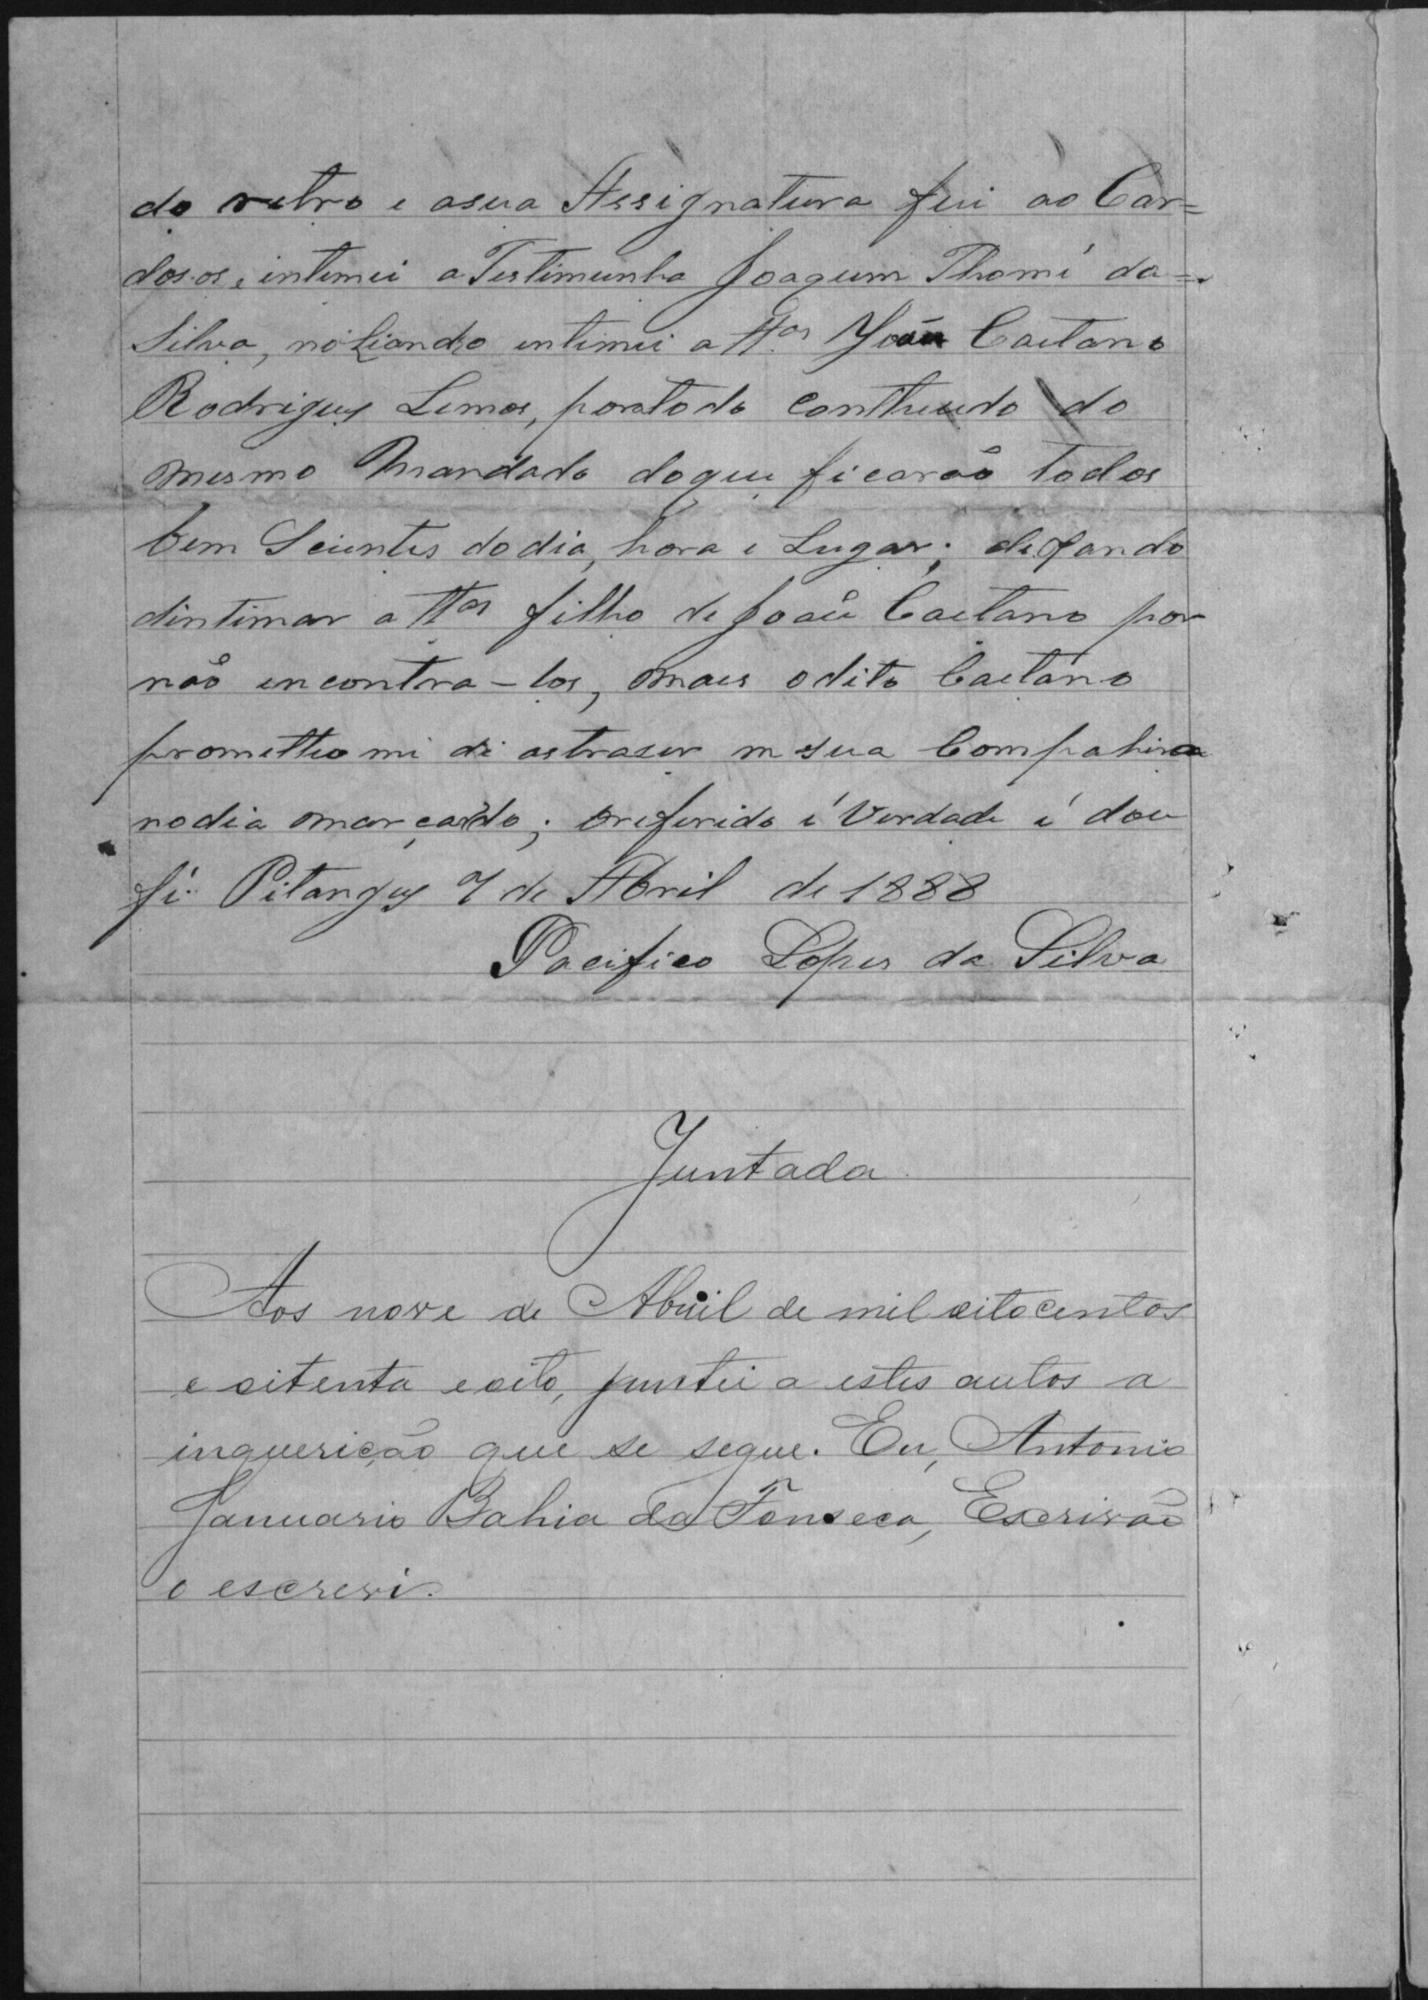 do retro e asua Assignatura fui ao Car=
dosos, intimei a Testimunha Joaquim Thomé da=
Silva, no Liandro intimei a ttas João Caetano
Rodrigues Lemos, portodo Contheudo do
mesmo Mandado doque ficarão todos
bem Scientes do dia, hora e Lugar; dexando
dintimar a ttas filho de João Caetano por
não encontra-los, mais o dito Caetano
prometteo mi di astraser in sua Compahina
nodia marcardo; oreferido é Verdade é dou
fé. Pitanguy 7 de Abril de 1888
Pacifico Lopes da Silva
Juntada
Aos nove de Abril de mil oitocentos
e oitenta e oito, juntei a estes autos a
inquerição que se segue. Eu, Antonio
Januario Bahia da Fonseca, Escrivão
o escrevi.